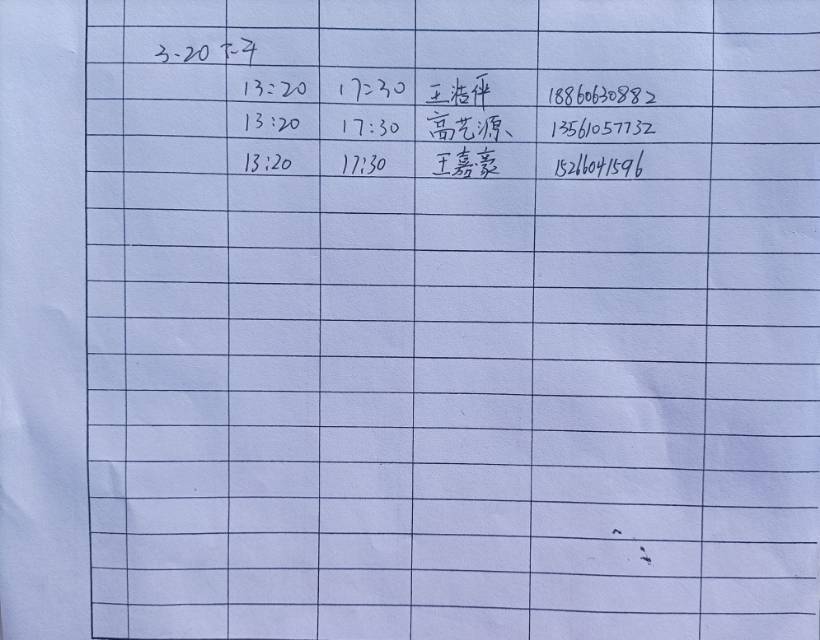 3-20 下午
13:20 17:30 王浩伴 18860630882
13:20 17:30 高艺源 13561057732
13:20 17:30 王嘉豪 15266041596